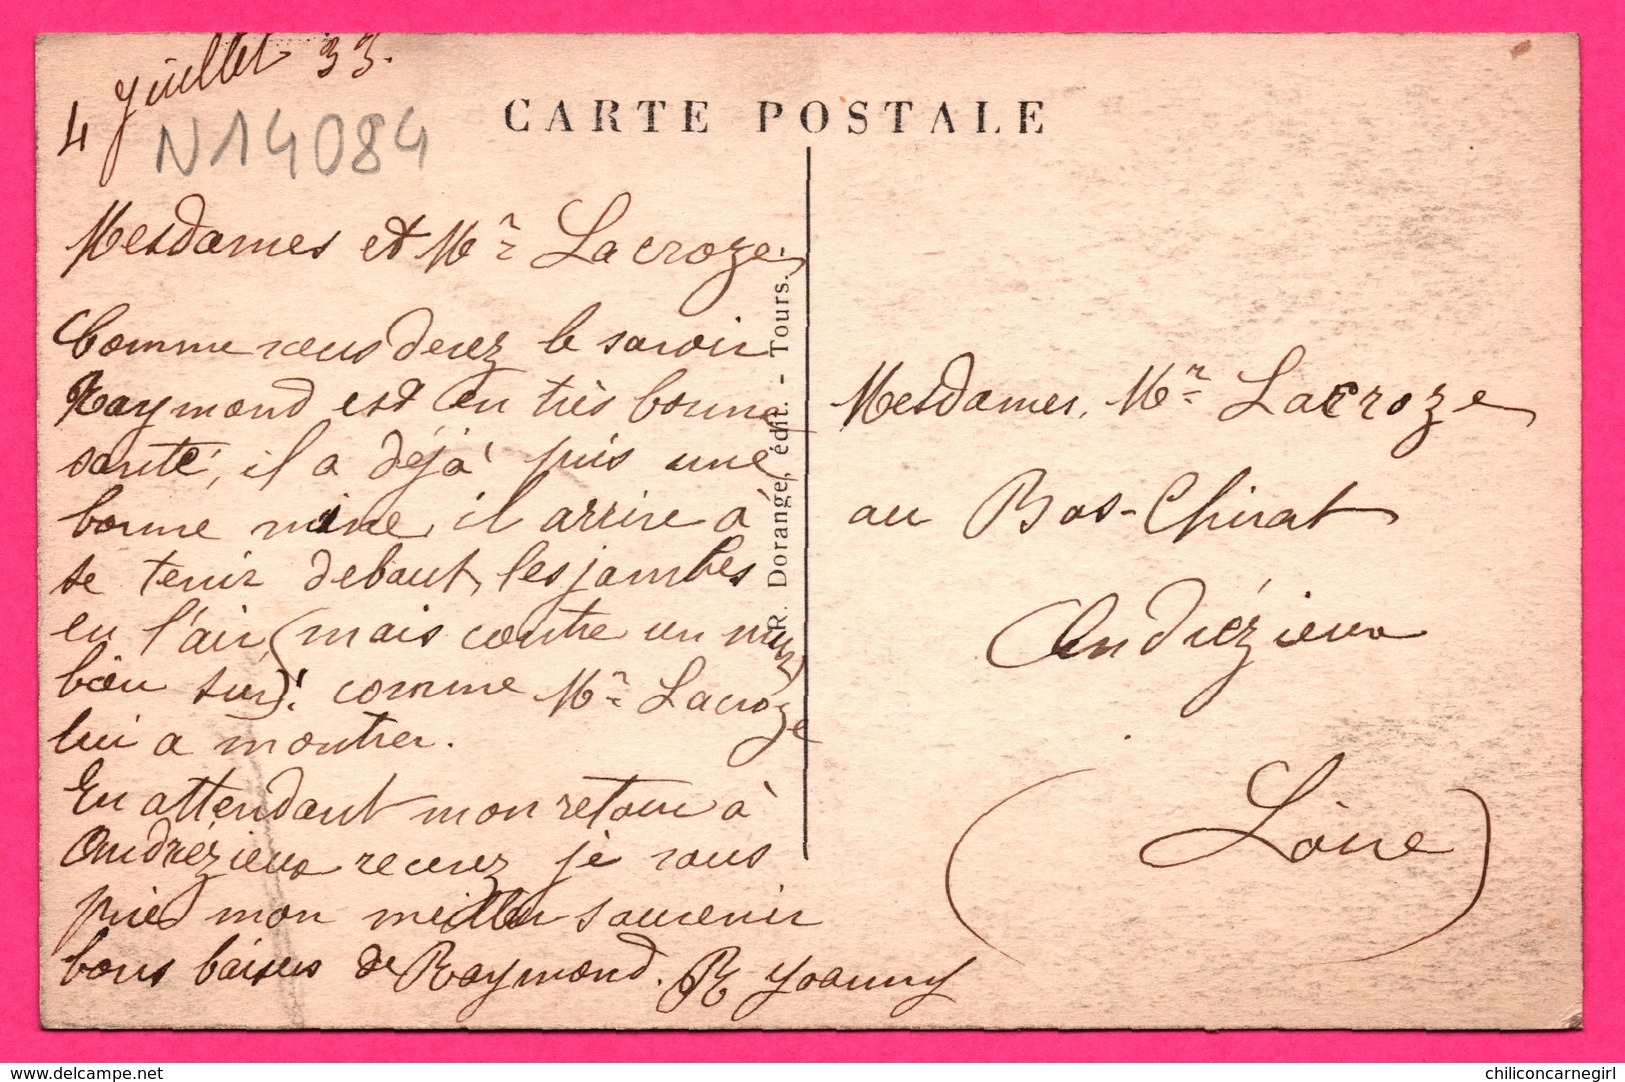 4 Juillet 33.
N14084
CARTE POSTALE
Mesdames et Mr Lacroze
Comme vous devez le savoir
Raymond est en très bonne
santé, il a déjà pris une
bonne mine, il arrive à
se tenir debout, les jambes
en l'air, (mais contre un mur
bien sur)! comme Mr Lacroze
lui a montrer.
En attendant mon retour à
Andrézieux recevez je vous
prie mon meilleur souvenir
bons baisers de Raymond. R Joanny
R. Dorange, édit. - Tours.
Mesdames, Mr Lacroze
au Bas-Chirat
Andrézieux
(Loire)
delcampe.net
chiliconcarnegirl